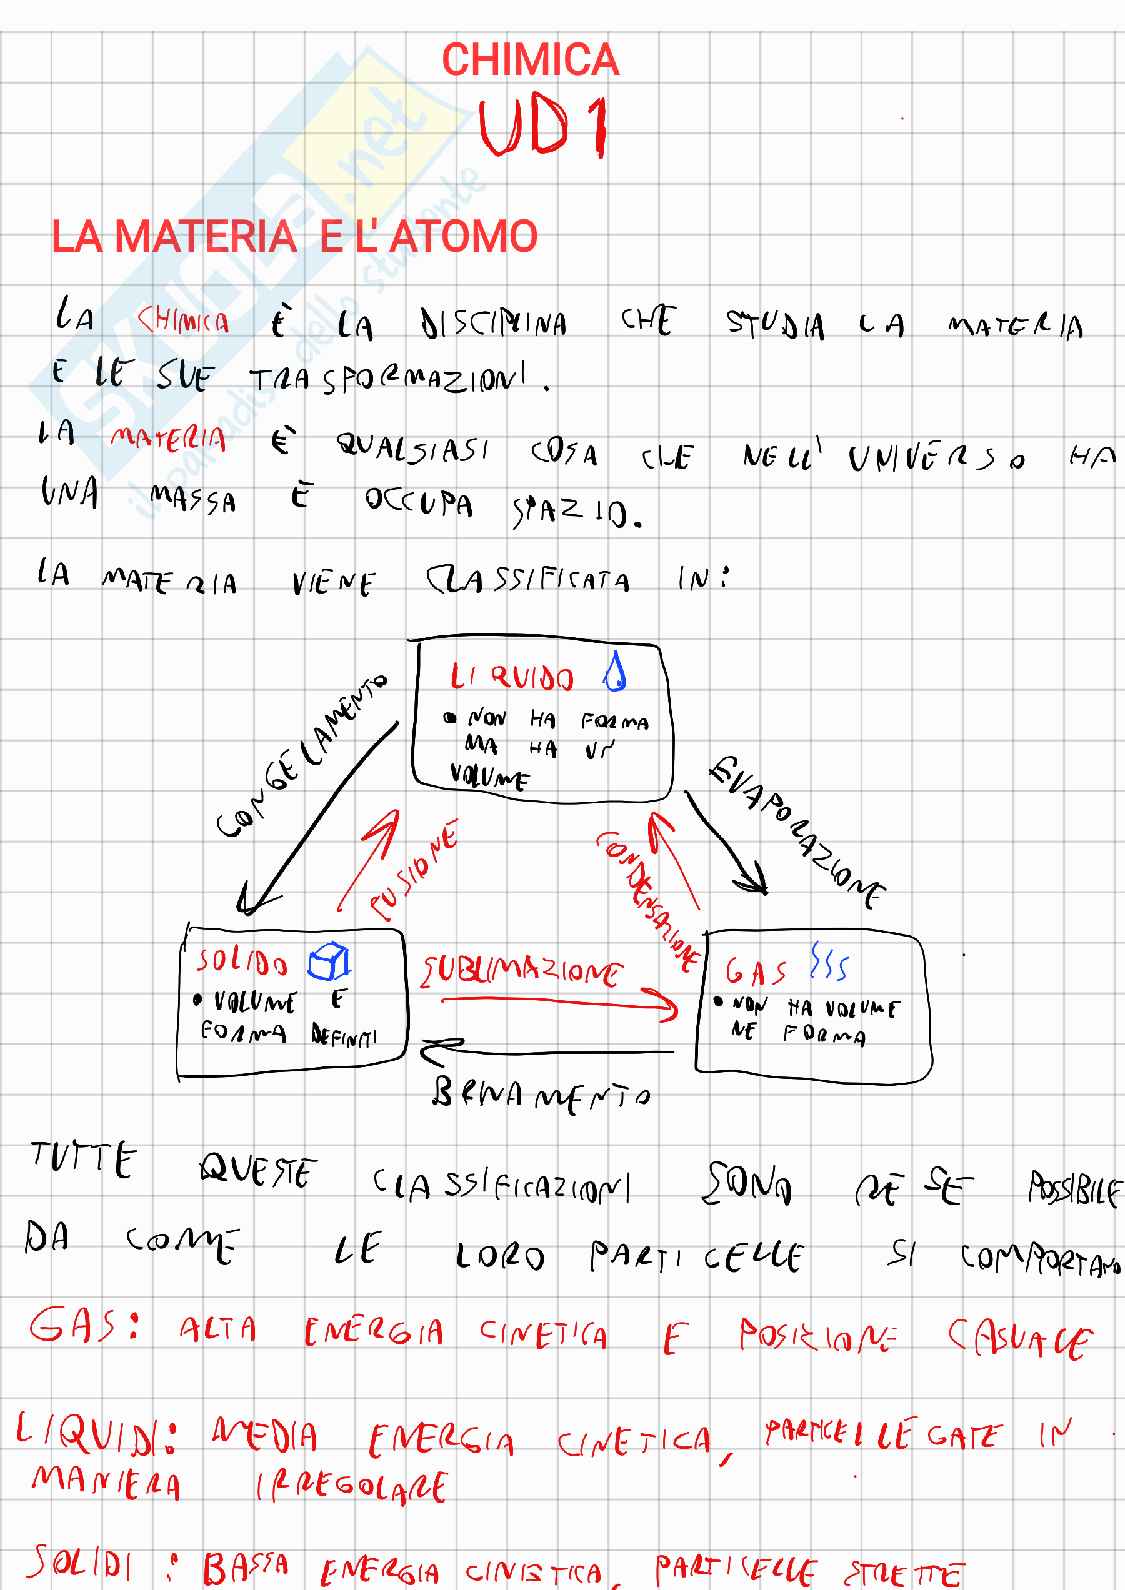 CHIMICA
UD1
LA MATERIA E L' ATOMO
LA CHIMICA È LA DISCIPLINA CHE STUDIA LA MATERIA
E LE SUE TRASFORMAZIONI.
LA MATERIA È QUALSIASI COSA CHE NELL' UNIVERSO HA
UNA MASSA E OCCUPA SPAZIO.
LA MATERIA VIENE CLASSIFICATA IN:
LIQUIDO
• NON HA FORMA
MA HA UN
VOLUME
CONGELAMENTO
EVAPORAZIONE
FUSIONE
CONDENSAZIONE
SOLIDO
• VOLUME E
FORMA DEFINITI
SUBLIMAZIONE
GAS
• NON HA VOLUME
NE FORMA
BRINAMENTO
TUTTE QUESTE CLASSIFICAZIONI SONO RESE POSSIBILE
DA COME LE LORO PARTICELLE SI COMPORTANO
GAS: ALTA ENERGIA CINETICA E POSIZIONE CASUALE
LIQUIDI: MEDIA ENERGIA CINETICA, PARTICEL LEGATE IN
MANIERA IRREGOLARE
SOLIDI: BASSA ENERGIA CINETICA, PARTICELLE STRETTE
SKUOLA.net
il paradiso dello studente